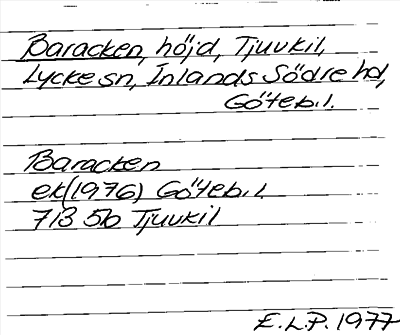 Baracken, höjd, Tjuvkil,
Lycke sn, Inlands Södre hd,
Göteb. l.
Baracken
ek (1976) Göteb. l.
7B 5b Tjuvkil
E.L.P. 1977